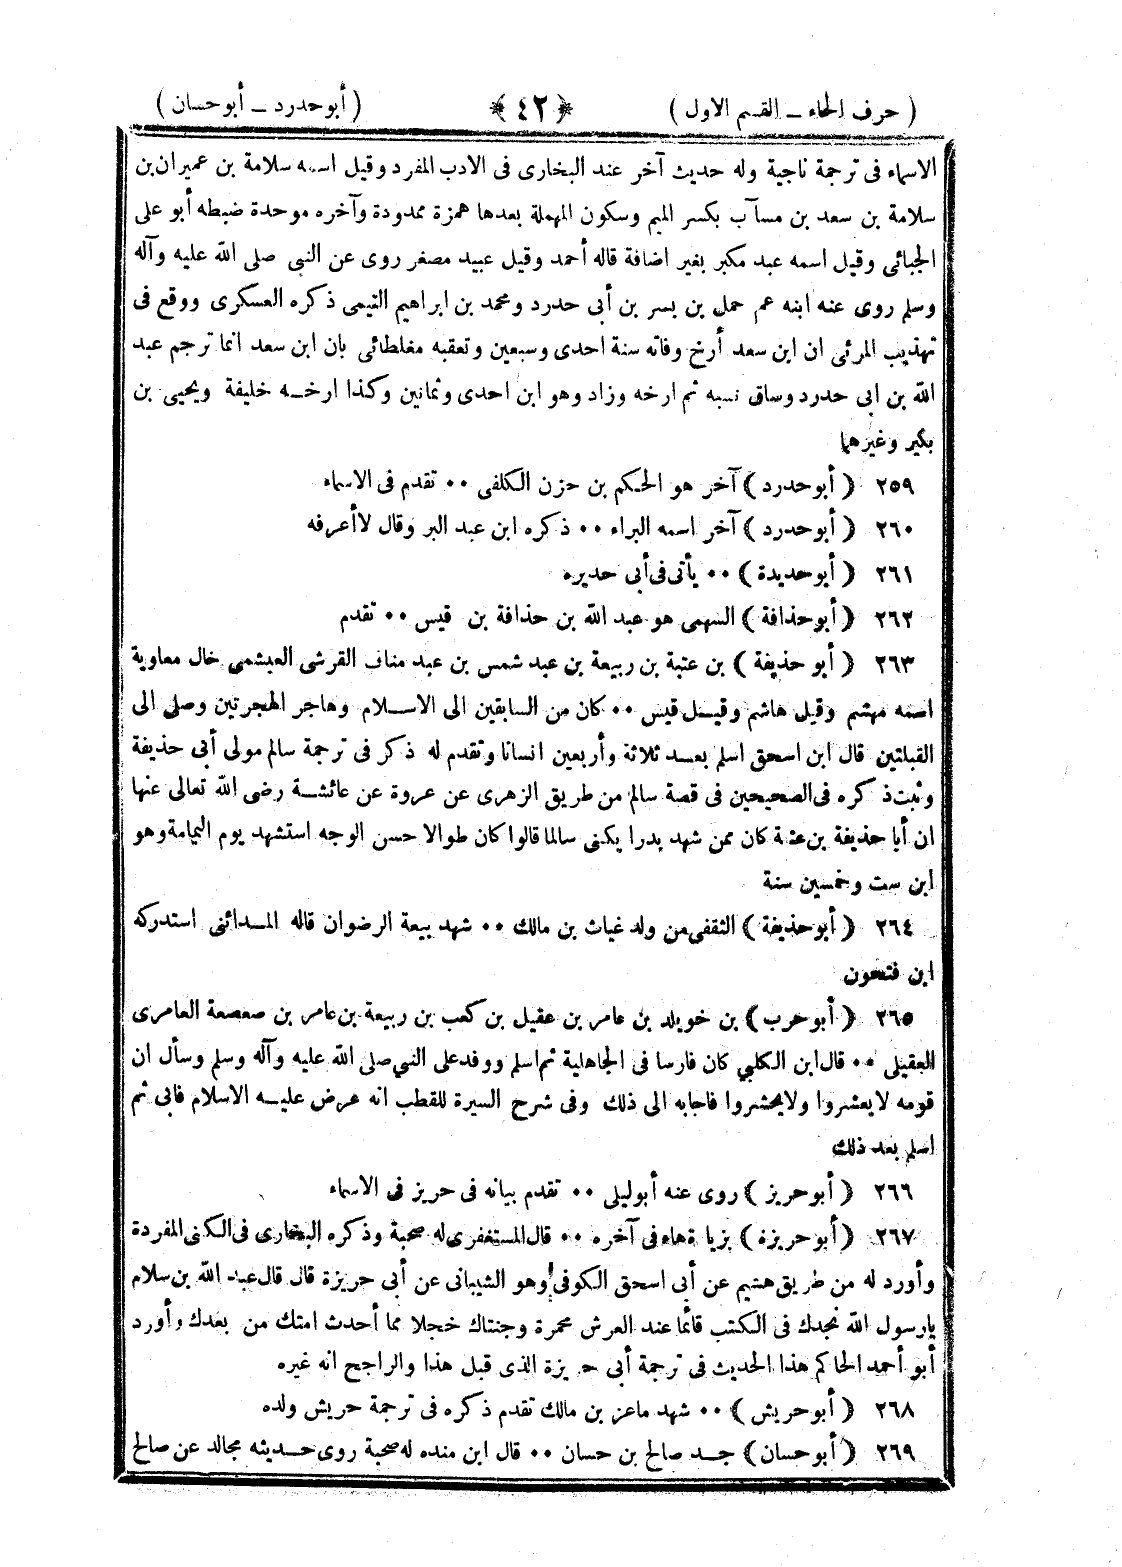 ( حرف الحاء ــ القسم الاول ) ﴿ ٤٢ ﴾ ( أبوحدرد ــ أبوحسان )
الاسماء فى ترجمة ناجية وله حديث آخر عند البخارى فى الادب المفرد وقيل اسمه سلامة بن عميران بن
سلامة بن سعد بن مسآب بكسر الميم وسكون المهملة بعدها همزة ممدودة وآخره موحدة ضبطه أبو على
الجبائى وقيل اسمه عبد مكبر بغير اضافة قاله أحمد وقيل عبيد مصغر روى عن النبى صلى الله عليه وآله
وسلم روى عنه ابنه عم حمل بن بسر بن أبى حدرد ومحمد بن ابراهيم التيمى ذكره العسكرى ووقع فى
تهذيب المزنى ان ابن سعد أرخ وفاته سنة احدى وسبعين وتعقبه مغلطائى بان ابن سعد انما ترجم عبد
الله بن ابى حدرد وساق نسبه ثم ارخه وزاد وهو ابن احدى وثمانين وكذا ارخــه خليفة ويحيى بن
بكير وغيرهما
٢٥٩ ( أبوحدرد ) آخر هو الحكم بن حزن الكلفى ٠٠ تقدم فى الاسماء
٢٦٠ ( أبوحدرد ) آخر اسمه البراء ٠٠ ذكره ابن عبد البر وقال لاأعرفه
٢٦١ ( أبوحديدة ) ٠٠ يأتى فى أبى حديره
٢٦٢ ( أبوحذافة ) السهمى هو عبد الله بن حذافة بن قيس ٠٠ تقدم
٢٦٣ ( أبو حذيفة ) بن عتبة بن ربيعة بن عبد شمس بن عبد مناف القرشى العبشمى خال معاوية
اسمه مهشم وقيل هاشم وقيــل قيس ٠٠ كان من السابقين الى الاســلام وهاجر الهجرتين وصلى الى
القبلتين قال ابن اسحق اسلم بعــد ثلاثة وأربعين انسانا وتقدم له ذكر فى ترجمة سالم مولى أبى حذيفة
وثبت ذكره فى الصحيحين فى قصة سالم من طريق الزهرى عن عروة عن عائشــة رضى الله تعالى عنها
ان أبا حذيفة بن عتبة كان ممن شهد بدرا يكنى سالما قالوا كان طوالا حسن الوجه استشهد يوم اليمامة وهو
ابن ست وخمسين سنة
٢٦٤ ( أبوحذيفة ) الثقفى من ولد غياث بن مالك ٠٠ شهد بيعة الرضوان قاله المــدائنى استدركه
ابن فتحون
٢٦٥ ( أبوحرب ) بن خويلد بن عامر بن عقيل بن كعب بن ربيعة بن عامر بن صعصعة العامرى
العقيلى ٠٠ قال ابن الكلبي كان فارسا فى الجاهلية ثم اسلم ووفد على النبي صلى الله عليه وآله وسلم وسأل ان
قومه لايعشروا ولايحشروا فاجابه الى ذلك وفى شرح السيرة للقطب انه عرض عليــه الاسلام فابى ثم
اسلم بعد ذلك
٢٦٦ ( أبوحريز ) روى عنه أبوليلى ٠٠ تقدم بيانه فى حريز فى الاسماء
٢٦٧ ( أبوحريزة ) بزيادة هاء فى آخره ٠٠ قال المستغفرى له صحبة وذكره البخارى فى الكنى المفردة
وأورد له من طريق هشيم عن أبى اسحق الكوفى وهو الشيبانى عن أبى حريزة قال قال عبد الله بن سلام
يارسول الله نجدك فى الكتب قائما عند العرش محمرة وجنتاك خجلا مما أحدث امتك من بعدك وأورد
أبو أحمد الحاكم هذا الحديث فى ترجمة أبى حريزة الذى قبل هذا والراجح انه غيره
٢٦٨ ( أبوحريش ) ٠٠ شهد ماعز بن مالك تقدم ذكره فى ترجمة حريش ولده
٢٦٩ ( أبوحسان ) جــد صالح بن حسان ٠٠ قال ابن منده له صحبة روى حــديثه مجالد عن صالح